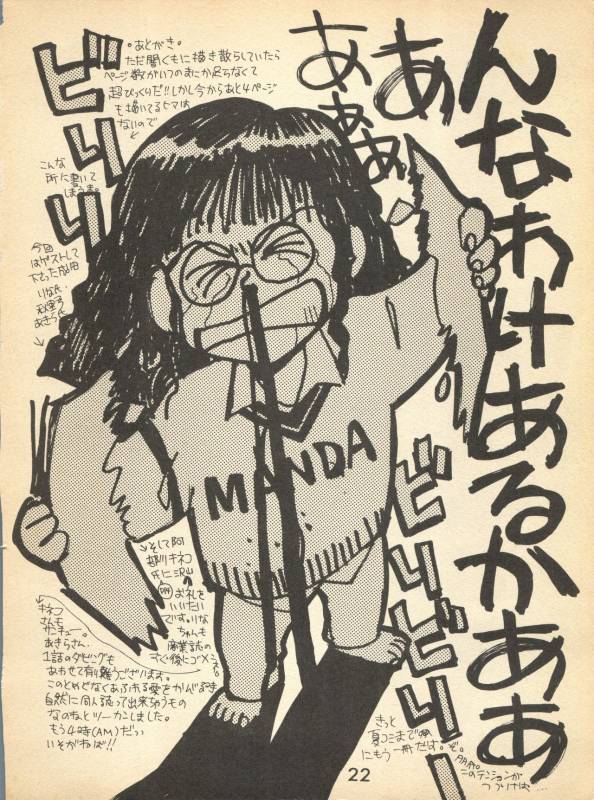 んなわけあるかあぁ
ああ
あぁぁ
ビリリリ
。あとがき。
ただ闇くもに描き散らしていたら
ページ数がいつのまにか足らなくて
超びっくりだ!!しかし今からあと4ページ
も描いてるヒマは
ないので
こんな
所に書いて
しまうす。
今回
はゲストして
下さった
りな氏、
あきら氏
MANDA
ビリビリー
そして阿
キネコ
氏に沢山
お礼を
いいたい
です。りな
ちゃんも
すぐ後にゴメンネ。
キネコ
さんも
サンキュー。
あきらさん.
1話のダビングも
あわせて有り難うございますョ。
このとめどなくあふれる愛をかんがみ
自然に同人誌って出来ちゃうもの
なのねとツーカしました。
もう4時(AM)だっ
いそがねば!!
きっと
夏コミまで
にもう一冊だす。ぞ。
このテンションが
つづけば…
22